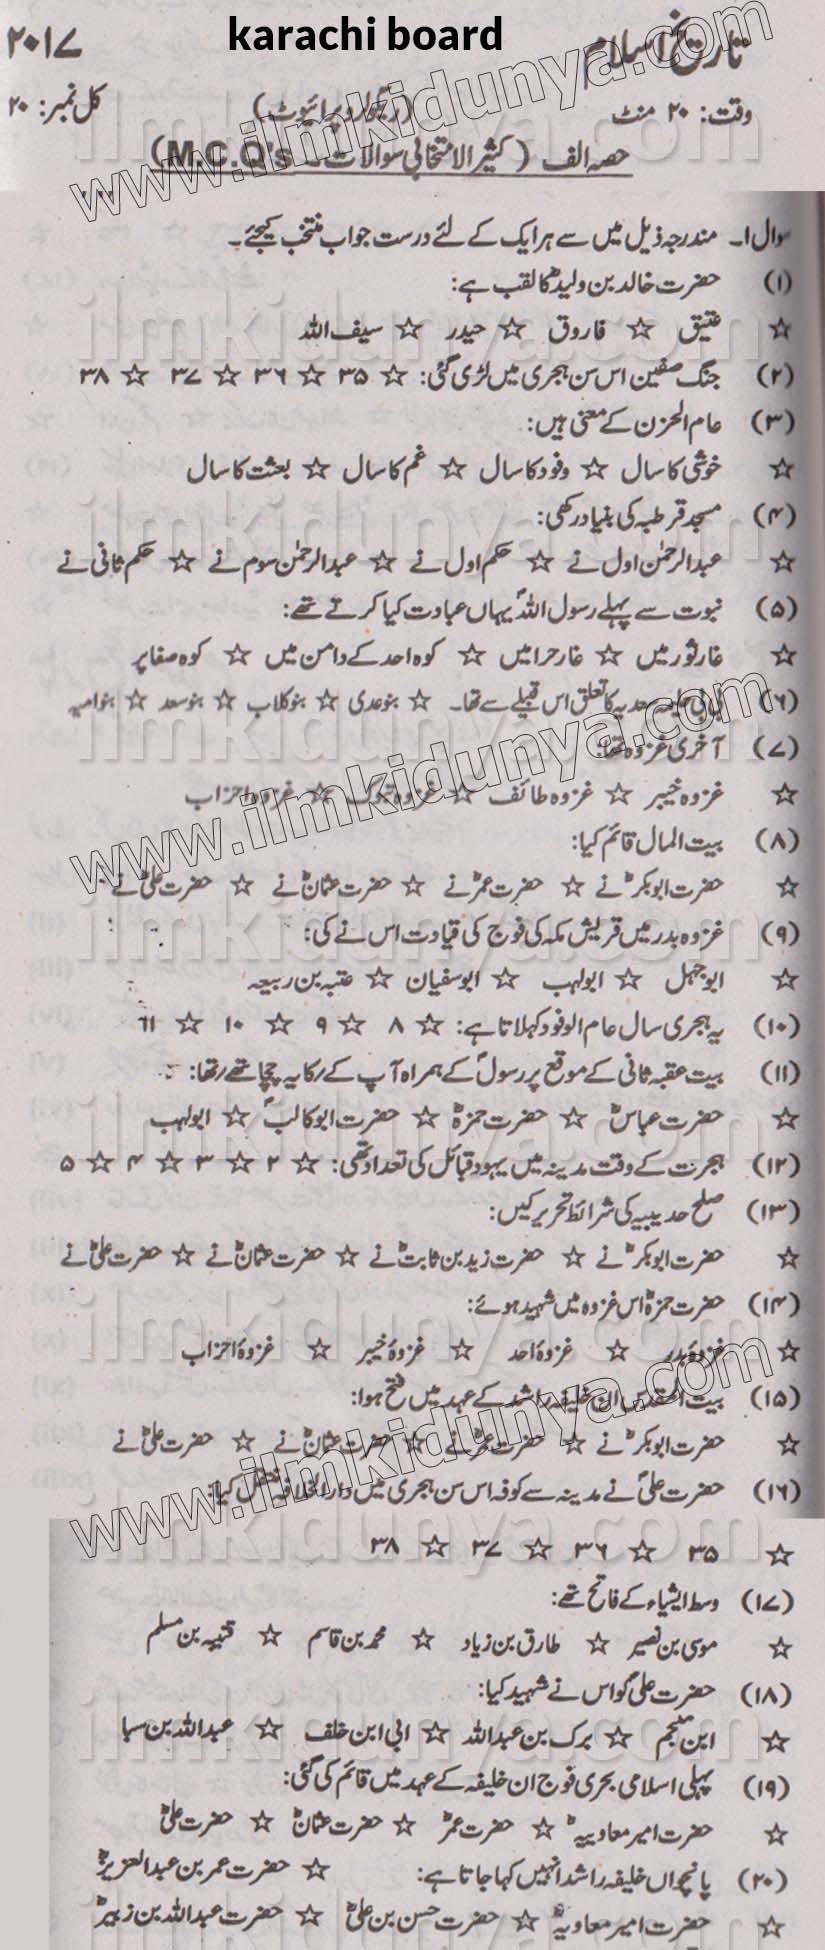 karachi board
تاریخ اسلام ۲۰۱۷
وقت: ۲۰ منٹ (ریگولر و پرائیوٹ) کل نمبر: ۲۰
حصہ الف (کثیر الانتخابی سوالات۔ M.C.Q's)
سوال ۱۔ مندرجہ ذیل میں سے ہر ایک کے لئے درست جواب منتخب کیجئے۔
(۱) حضرت خالد بن ولیدؓ کا لقب ہے:
☆ عتیق ☆ فاروق ☆ حیدر ☆ سیف اللہ
(۲) جنگ صفین اس سن ہجری میں لڑی گئی: ☆ ۳۵ ☆ ۳۶ ☆ ۳۷ ☆ ۳۸
(۳) عام الحزن کے معنی ہیں:
☆ خوشی کا سال ☆ وفود کا سال ☆ غم کا سال ☆ بعثت کا سال
(۴) مسجد قرطبہ کی بنیاد رکھی:
☆ عبدالرحمٰن اول نے ☆ حکم اول نے ☆ عبدالرحمٰن سوم نے ☆ حکم ثانی نے
(۵) نبوت سے پہلے رسول اللہؐ یہاں عبادت کیا کرتے تھے:
☆ غار ثور میں ☆ غار حرا میں ☆ کوہ احد کے دامن میں ☆ کوہ صفا پر
(۶) بی بی حلیمہ سعدیہ کا تعلق اس قبیلے سے تھا۔ ☆ بنو عدی ☆ بنو کلاب ☆ بنو سعد ☆ بنو امیہ
(۷) آخری غزوہ تھا:
☆ غزوہ خیبر ☆ غزوہ طائف ☆ غزوہ تبوک ☆ غزوہ احزاب
(۸) بیت المال قائم کیا:
☆ حضرت ابوبکرؓ نے ☆ حضرت عمرؓ نے ☆ حضرت عثمانؓ نے ☆ حضرت علیؓ نے
(۹) غزوہ بدر میں قریش مکہ کی فوج کی قیادت اس نے کی:
☆ ابو جہل ☆ ابولہب ☆ ابوسفیان ☆ عتبہ بن ربیعہ
(۱۰) یہ ہجری سال عام الوفود کہلاتا ہے: ☆ ۸ ☆ ۹ ☆ ۱۰ ☆ ۱۱
(۱۱) بیت عقبہ ثانی کے موقع پر رسولؐ کے ہمراہ آپ کے یہ چچا تھے:
☆ حضرت عباسؓ ☆ حضرت حمزہؓ ☆ حضرت ابوکالب ☆ ابولہب
(۱۲) ہجرت کے وقت مدینہ میں یہود قبائل کی تعداد تھی: ☆ ۲ ☆ ۳ ☆ ۴ ☆ ۵
(۱۳) صلح حدیبیہ کی شرائط تحریر کیں:
☆ حضرت ابوبکرؓ نے ☆ حضرت زید بن ثابتؓ نے ☆ حضرت عثمانؓ نے ☆ حضرت علیؓ نے
(۱۴) حضرت حمزہؓ اس غزوہ میں شہید ہوئے:
☆ غزوۂ بدر ☆ غزوۂ احد ☆ غزوۂ خیبر ☆ غزوۂ احزاب
(۱۵) بیت المقدس ان خلیفہ راشد کے عہد میں فتح ہوا:
☆ حضرت ابوبکرؓ نے ☆ حضرت عمرؓ نے ☆ حضرت عثمانؓ نے ☆ حضرت علیؓ نے
(۱۶) حضرت علیؓ نے مدینہ سے کوفہ اس سن ہجری میں دارالخلافہ منتقل کیا:
☆ ۳۵ ☆ ۳۶ ☆ ۳۷ ☆ ۳۸
(۱۷) وسط ایشیاء کے فاتح تھے:
☆ موسی بن نصیر ☆ طارق بن زیاد ☆ محمد بن قاسم ☆ قتیبہ بن مسلم
(۱۸) حضرت علیؓ کو اس نے شہید کیا:
☆ ابن ملجم ☆ برک بن عبداللہ ☆ ابی ابن خلف ☆ عبداللہ بن سبا
(۱۹) پہلی اسلامی بحری فوج ان خلیفہ کے عہد میں قائم کی گئی:
☆ حضرت امیر معاویہؓ ☆ حضرت عمرؓ ☆ حضرت عثمانؓ ☆ حضرت علیؓ
(۲۰) پانچواں خلیفہ راشد انہیں کہا جاتا ہے: ☆ حضرت عمر بن عبدالعزیزؒ
☆ حضرت امیر معاویہؓ ☆ حضرت حسن بن علیؓ ☆ حضرت عبداللہ بن زبیرؓ
www.ilmkidunya.com